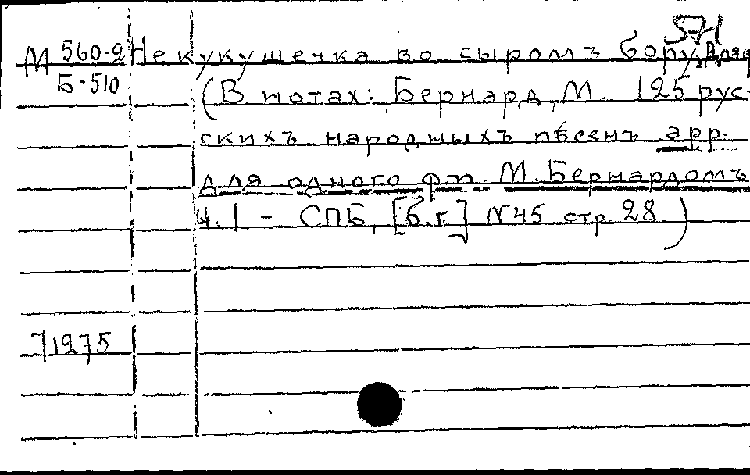 571
М 560-2 Не кукушечка во сыромъ бору. Для ф
Б-510 (В нотах: Бернард, М. 125 рус-
скихъ народныхъ пѣсенъ арр.
для одного фп. М. Бернардомъ
Ч. 1 - СПБ, [б.г.] N45 стр. 28.)
71275